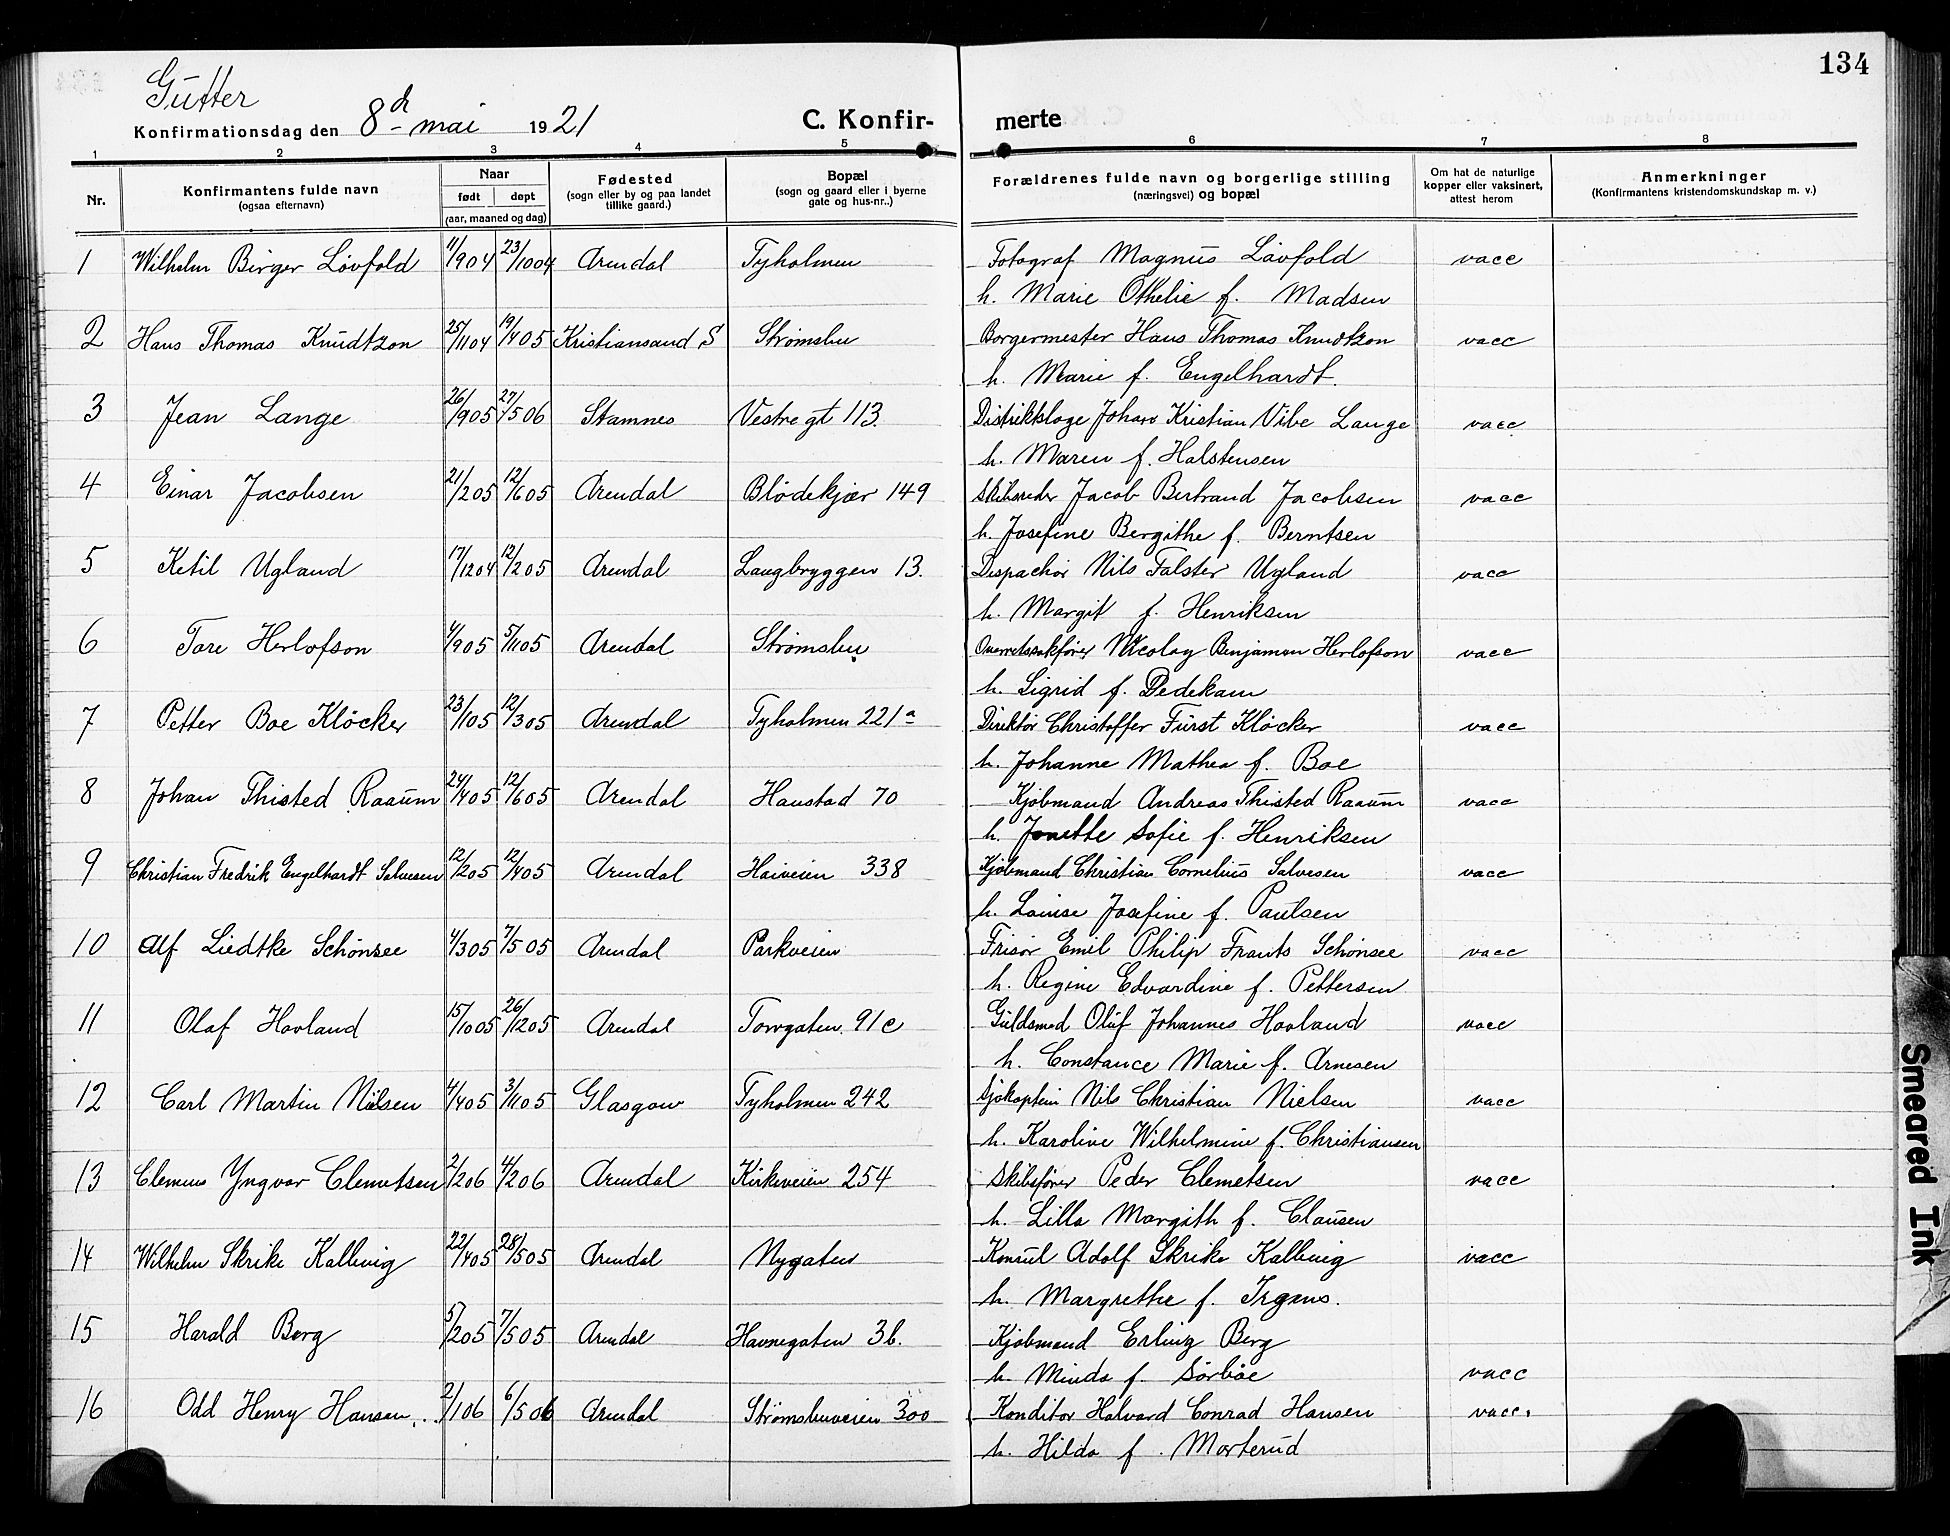 134
Gutter
Konfirmationsdag den 8d mai 1921 C. Konfirmerte
1 2 3 4 5 6 7 8
Nr. Konfirmantens fulde navn (ogsaa efternavn) Naar født døpt (aar, maaned og dag) Fødested (sogn eller by og paa landet tillike gaard.) Bopæl (sogn og gaard eller i byerne gate og hus-nr..) Forældrenes fulde navn og borgerlige stilling (næringsvei) og bopæl Om hat de naturlige kopper eller vaksinert, attest herom Anmerkninger (Konfirmantens kristendomskundskap m. v.)
1 Wilhelm Birger Løvfold 11/904 23/1004 Arendal Tyholmen Fotograf Magnus Løvfold vacc
h. Marie Othelie f. Madsen
2 Hans Thomas Knudtzon 25/1104 19/405 Kristiansand S Strømsbu Borgermester Hans Thomas Knudtzon vacc
h. Marie f. Engelhardt.
3 Jean Lange 26/905 27/506 Stamnes Vestre gt 113. Distriktslæge Johan Kristian Vibe Lange vacc
h. Maren f. Halstensen
4 Einar Jacobsen 21/205 12/605 Arendal Blødekjær 149 Skibsreder Jacob Bertrand Jacobsen vacc
h. Josefine Bergithe f. Berntsen
5 Ketil Ugland 17/1204 12/205 Arendal Langbryggen 13. Dispachør Nils Falster Ugland vacc
h. Margit f. Henriksen
6 Tore Herlofson 4/905 5/1105 Arendal Strømsbu Overretssakfører Nicolay Benjamin Herlofson vacc
h. Sigrid f. Dedekam
7 Petter Boe Kløcker 23/105 12/305 Arendal Tyholmen 221a Direktør Christoffer Fürst Kløcker vacc
h. Johanne Mathea f. Boe
8 Johan Thisted Raaum 24/405 12/605 Arendal Haustad 70 Kjøbmand Andreas Thisted Raaum vacc
h. Jonette Sofie f. Henriksen
9 Christian Fredrik Engelhardt Salvesen 12/205 12/405 Arendal Haiveien 338 Kjøbmand Christian Cornelius Salvesen vacc
h. Louise Josefine f. Paulsen
10 Alf Liedtke Schönsee 4/305 7/505 Arendal Parkveien Frisør Emil Philip Frants Schönsee vacc
h. Regine Edvardine f. Pettersen
11 Olaf Hovland 15/1005 26/1205 Arendal Torvgaten 91c Guldsmed Oluf Johannes Hovland vacc
h. Constance Marie f. Arnesen
12 Carl Martin Nilsen 4/405 3/1105 Glasgow Tyholmen 242 Sjøkaptein Nils Christian Nielsen vacc
h. Karoline Wilhelmine f. Christiansen
13 Clemens Yngvar Clemetsen 2/206 4/206 Arendal Kirkeveien 254 Skibsfører Peder Clemetsen vacc
h. Lilla Margith f. Clausen
14 Wilhelm Skrike Kallevig 22/405 28/505 Arendal Nygaten Konsul Adolf Skrike Kallevig vacc
h. Margrethe f. Irgens.
15 Harald Berg 5/205 7/505 Arendal Havnegaten 3b. Kjøbmand Erling Berg
h. Minda f. Sørbøe vacc
16 Odd Henry Hansen 2/106 6/506 Arendal Strømsbuveien 300 Konditor Halvard Conrad Hansen vacc.
h. Hilda f. Morterud
Smeared Ink